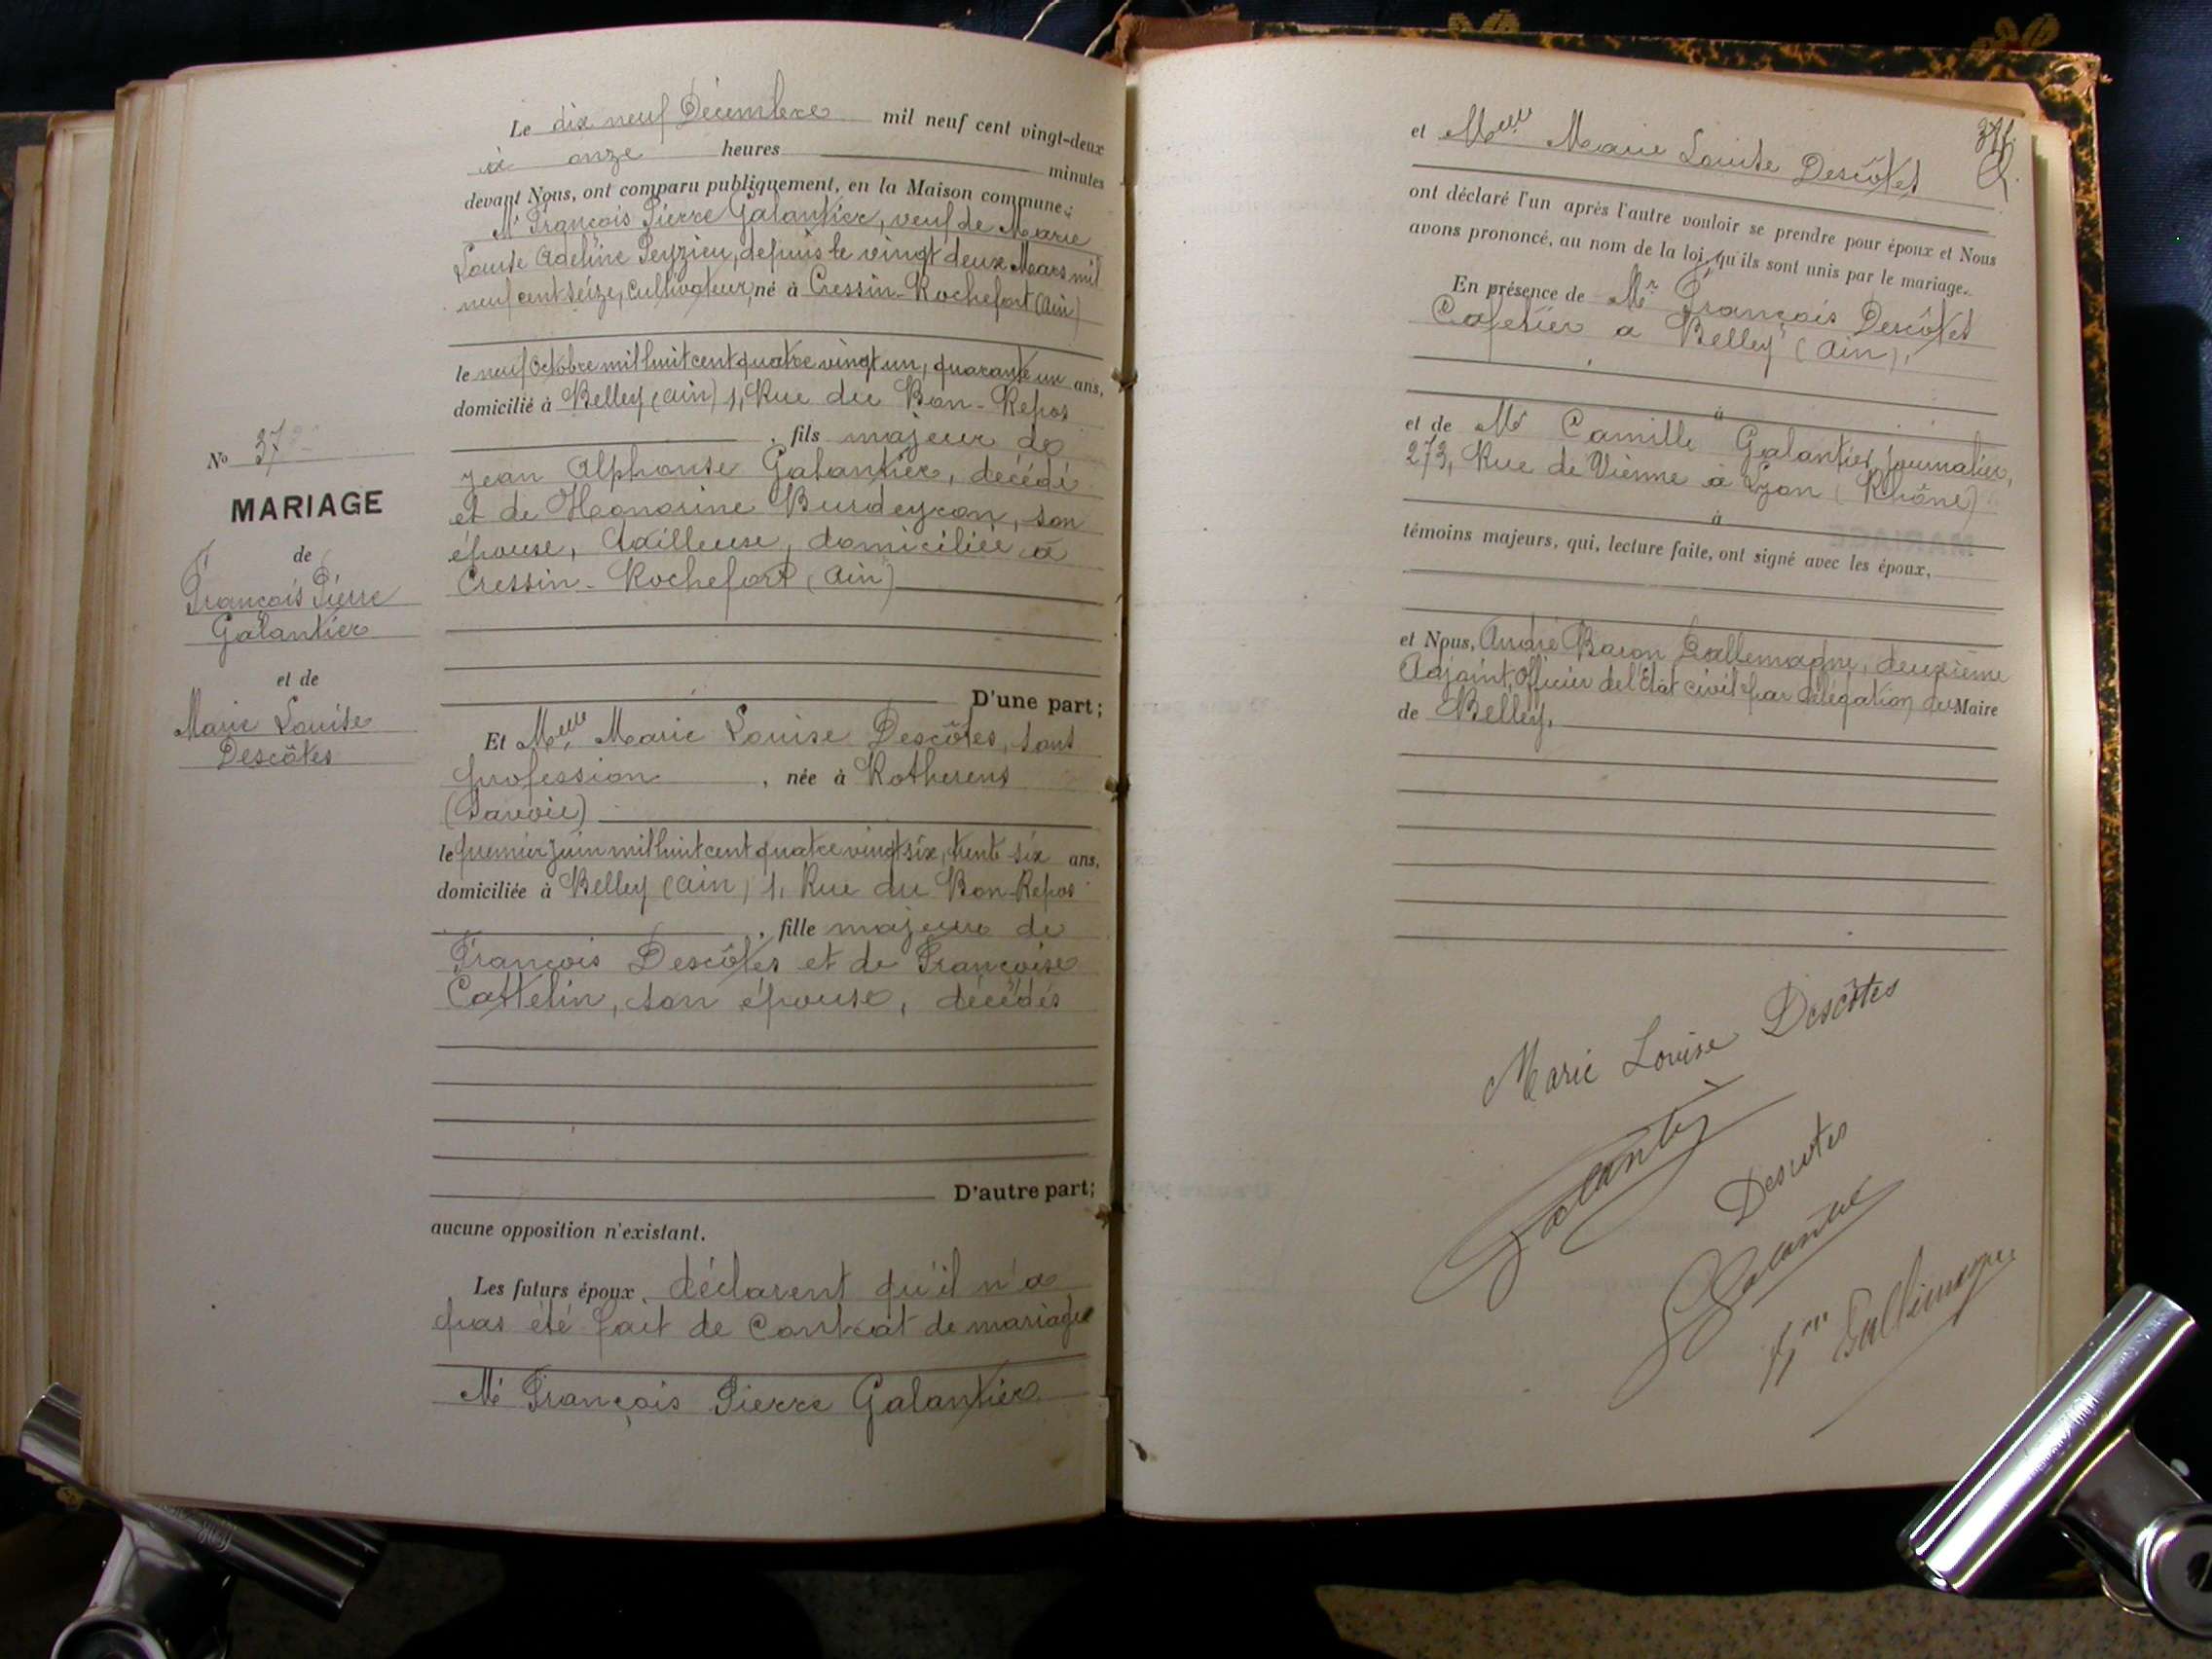 Le dix neuf Décembre mil neuf cent vingt-deux
à onze heures minutes
devant Nous, ont comparu publiquement, en la Maison commune:
Mr François Pierre Galantier, veuf de Marie
Louise Adeline Peyzieu, depuis le vingt deux Mars mil
neuf cent seize, cultivateur, né à Cressin-Rochefort (Ain)
le neuf Octobre mil huit cent quatre vingt un, quarante un ans,
domicilié à Belley (Ain) 1, Rue du Bon-Repos
, fils majeur de
Jean Alphonse Galantier, décédé
et de Honorine Burdeyron, son
épouse, tailleuse, domiciliée à
Cressin-Rochefort (Ain)
D'une part;
Et Melle Marie Louise Descôtes, sans
profession, née à Rotherens
(Savoie)
le premier juin mil huit cent quatre vingt six, trente six ans,
domiciliée à Belley (Ain) 1, Rue du Bon-Repos
, fille majeure de
François Descôtes et de Françoise
Cattelin, son épouse, décédés
D'autre part;
aucune opposition n'existant.
Les futurs époux déclarent qu'il n'a
pas été fait de Contrat de mariage
Mr François Pierre Galantier
No 37
MARIAGE
de
François Pierre
Galantier
et de
Marie Louise
Descôtes
et Melle Marie Louise Descôtes
ont déclaré l'un après l'autre vouloir se prendre pour époux et Nous
avons prononcé, au nom de la loi, qu'ils sont unis par le mariage.
En présence de Mr François Descôtes
Cafetier à Belley (Ain),
à
et de Mr Camille Galantier, journalier,
273, Rue de Vienne à Lyon (Rhône)
à
témoins majeurs, qui, lecture faite, ont signé avec les époux,
et Nous, André Baron Dallemagne, deuxième
Adjoint, Officier de l'Etat civil par délégation du Maire
de Belley,
Marie Louise Descôtes
Galantier
Descotes
Galantier
Bon Dallemagne